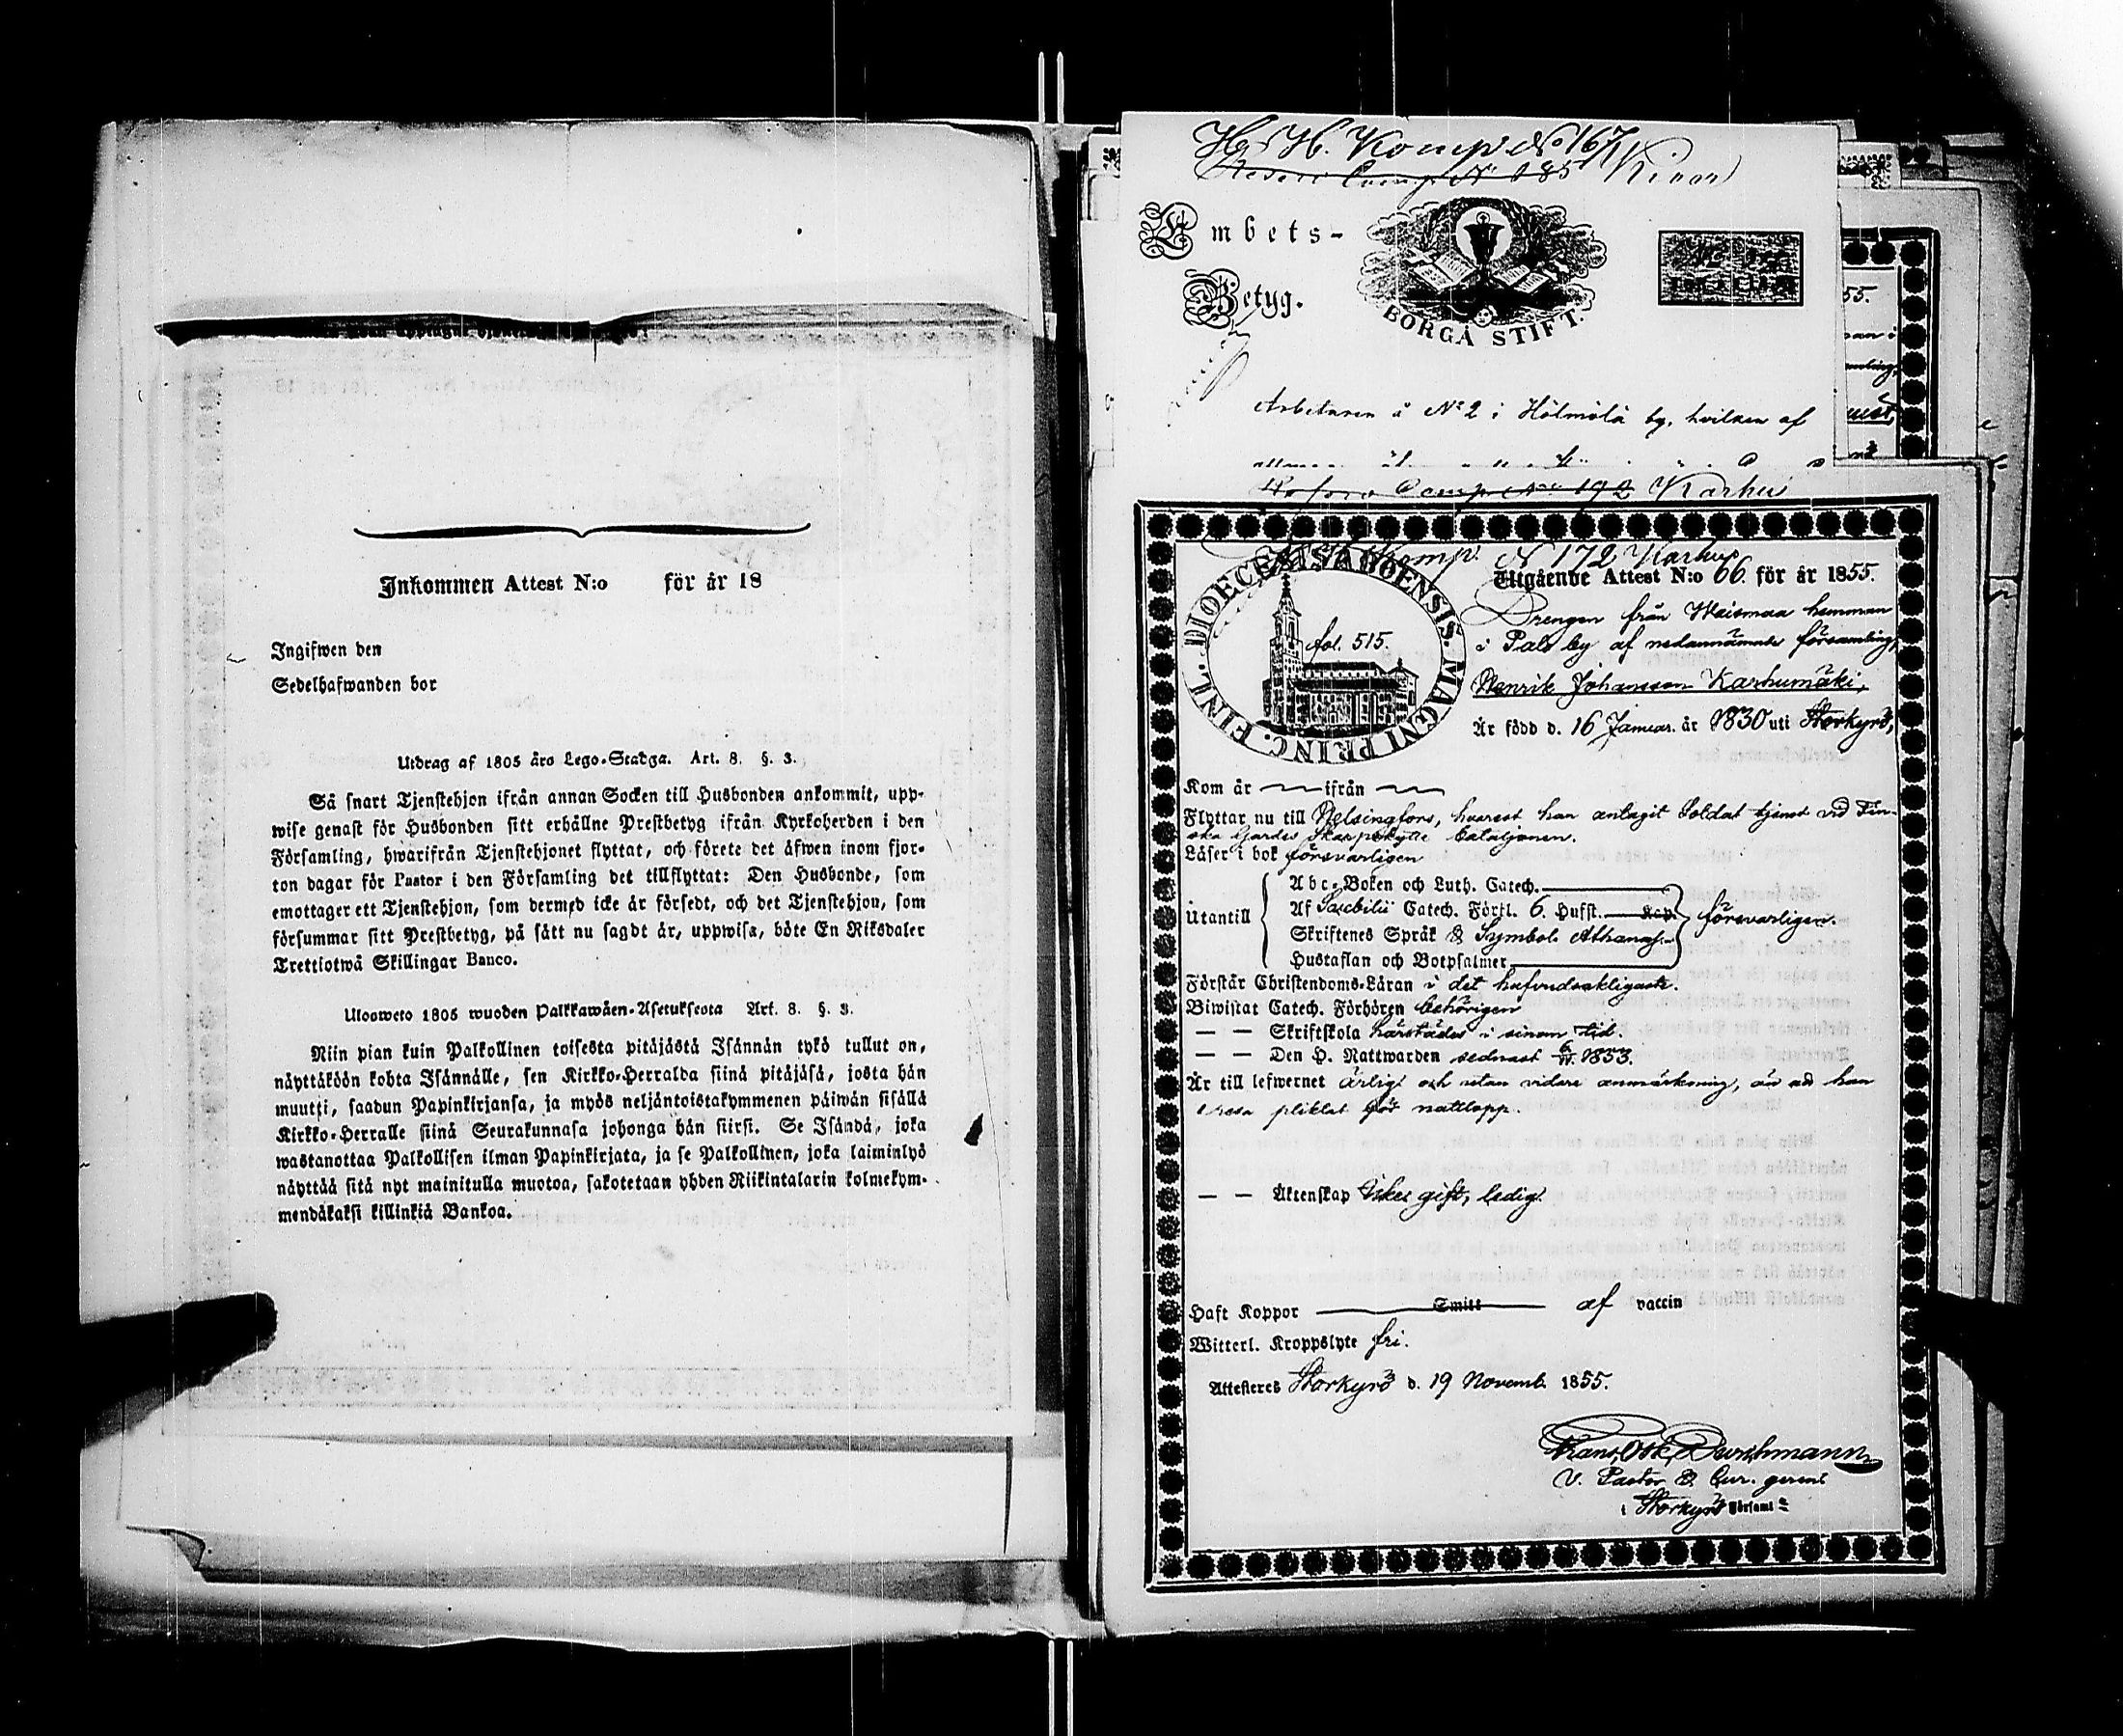 Inkommen Attest N:o för år 18
Ingifwen den
Sedelhafwanden bor
Utdrag af 1805 års Lego-Stadga. Art. 8. §. 3.
Så snart Tjenstehjon ifrån annan Socken till Husbonden ankommit, upp-
wise genast för Husbonden sitt erhållne Prestbetyg ifrån Kyrkoherden i den
Församling, hwarifrån Tjenstehjonet flyttat, och förete det äfwen inom fjor-
ton dagar för Pastor i den Församling det tillflyttat: Den Husbonde, som
emottager ett Tjenstehjon, som dermed icke är försedt, och det Tjenstehjon, som
försummar sitt Prestbetyg, på sätt nu sagdt är, uppwisa, böte En Riksdaler
Trettiotwå Skillingar Banco.
Ulosweto 1805 wuoden Palkkawäen-Asetuksesta Art. 8. §. 3.
Niin pian kuin Palkollinen toisesta pitäjästä Isännän tykö tullut on,
näyttäköön kohta Isännälle, sen Kirkko-Herralda siinä pitäjäsä, josta hän
muutti, saadun Papinkirjansa, ja myös neljäntoistakymmenen päiwän sisällä
Kirkko-Herralle siinä Seurakunnasa johonga hän siirsi. Se Isändä, joka
wastanottaa Palkollisen ilman Papinkirjata, ja se Palkollinen, joka laiminlyö
näyttää sitä nyt mainitulla muotoa, sakotetaan yhden Riikintalarin kolmekym-
mendäkaksi killinkiä Bankoa.
H. Komp. No 167
Comp. N 185
Embets-
Betyg.
BORGÅ STIFT.
Arbetaren å No 2 i Hölmölä by, hvilken af
Comp No 192 Karhu
Komp. N 172 Karhu
DIOECESIS ABOENSIS. MAGNI PRINC. FINL.
fol. 515.
Utgående Attest N:o 66. för år 1855.
Drengen från Waismaa hemman
i Palo by af nedannämnde församling,
Henrik Johansson Karhumäki,
Är född d. 16 Januar. år 1830 uti Storkyrö,
Kom år ifrån
Flyttar nu till Helsingfors, hvarest han antagit Soldat tjenst vid Fin-
ska Gardes Skarpskytte bataljonen.
Läser i bok försvarligen
Utantill
Abc-Boken och Luth. Catech.
Af Svebilii Catech. Förkl. 6. Hufst. Kap.
Skriftenes Språk & Symbol. Athanas.
Hustaflan och Botpsalmer
försvarligen.
Förstår Christendoms-Läran i det hufvudsakligaste.
Biwistat Catech. Förhören behörigen
— — Skriftskola härstädes i sinom tid.
— — Den H. Nattwarden sednast 1853.
Är till lefwernet ärlig och utan vidare anmärkning, än att han
pliktat för nattlopp.
— — Äktenskap Icke gift, ledig.
Haft Koppor Smitt af vaccin
Witterl. Kroppslyte fri.
Attesteres Storkyrö d. 19 Novemb. 1855.
Frans Osk. Durchmann
V. Pastor & Cur. gerens
i Storkyrö Församl.